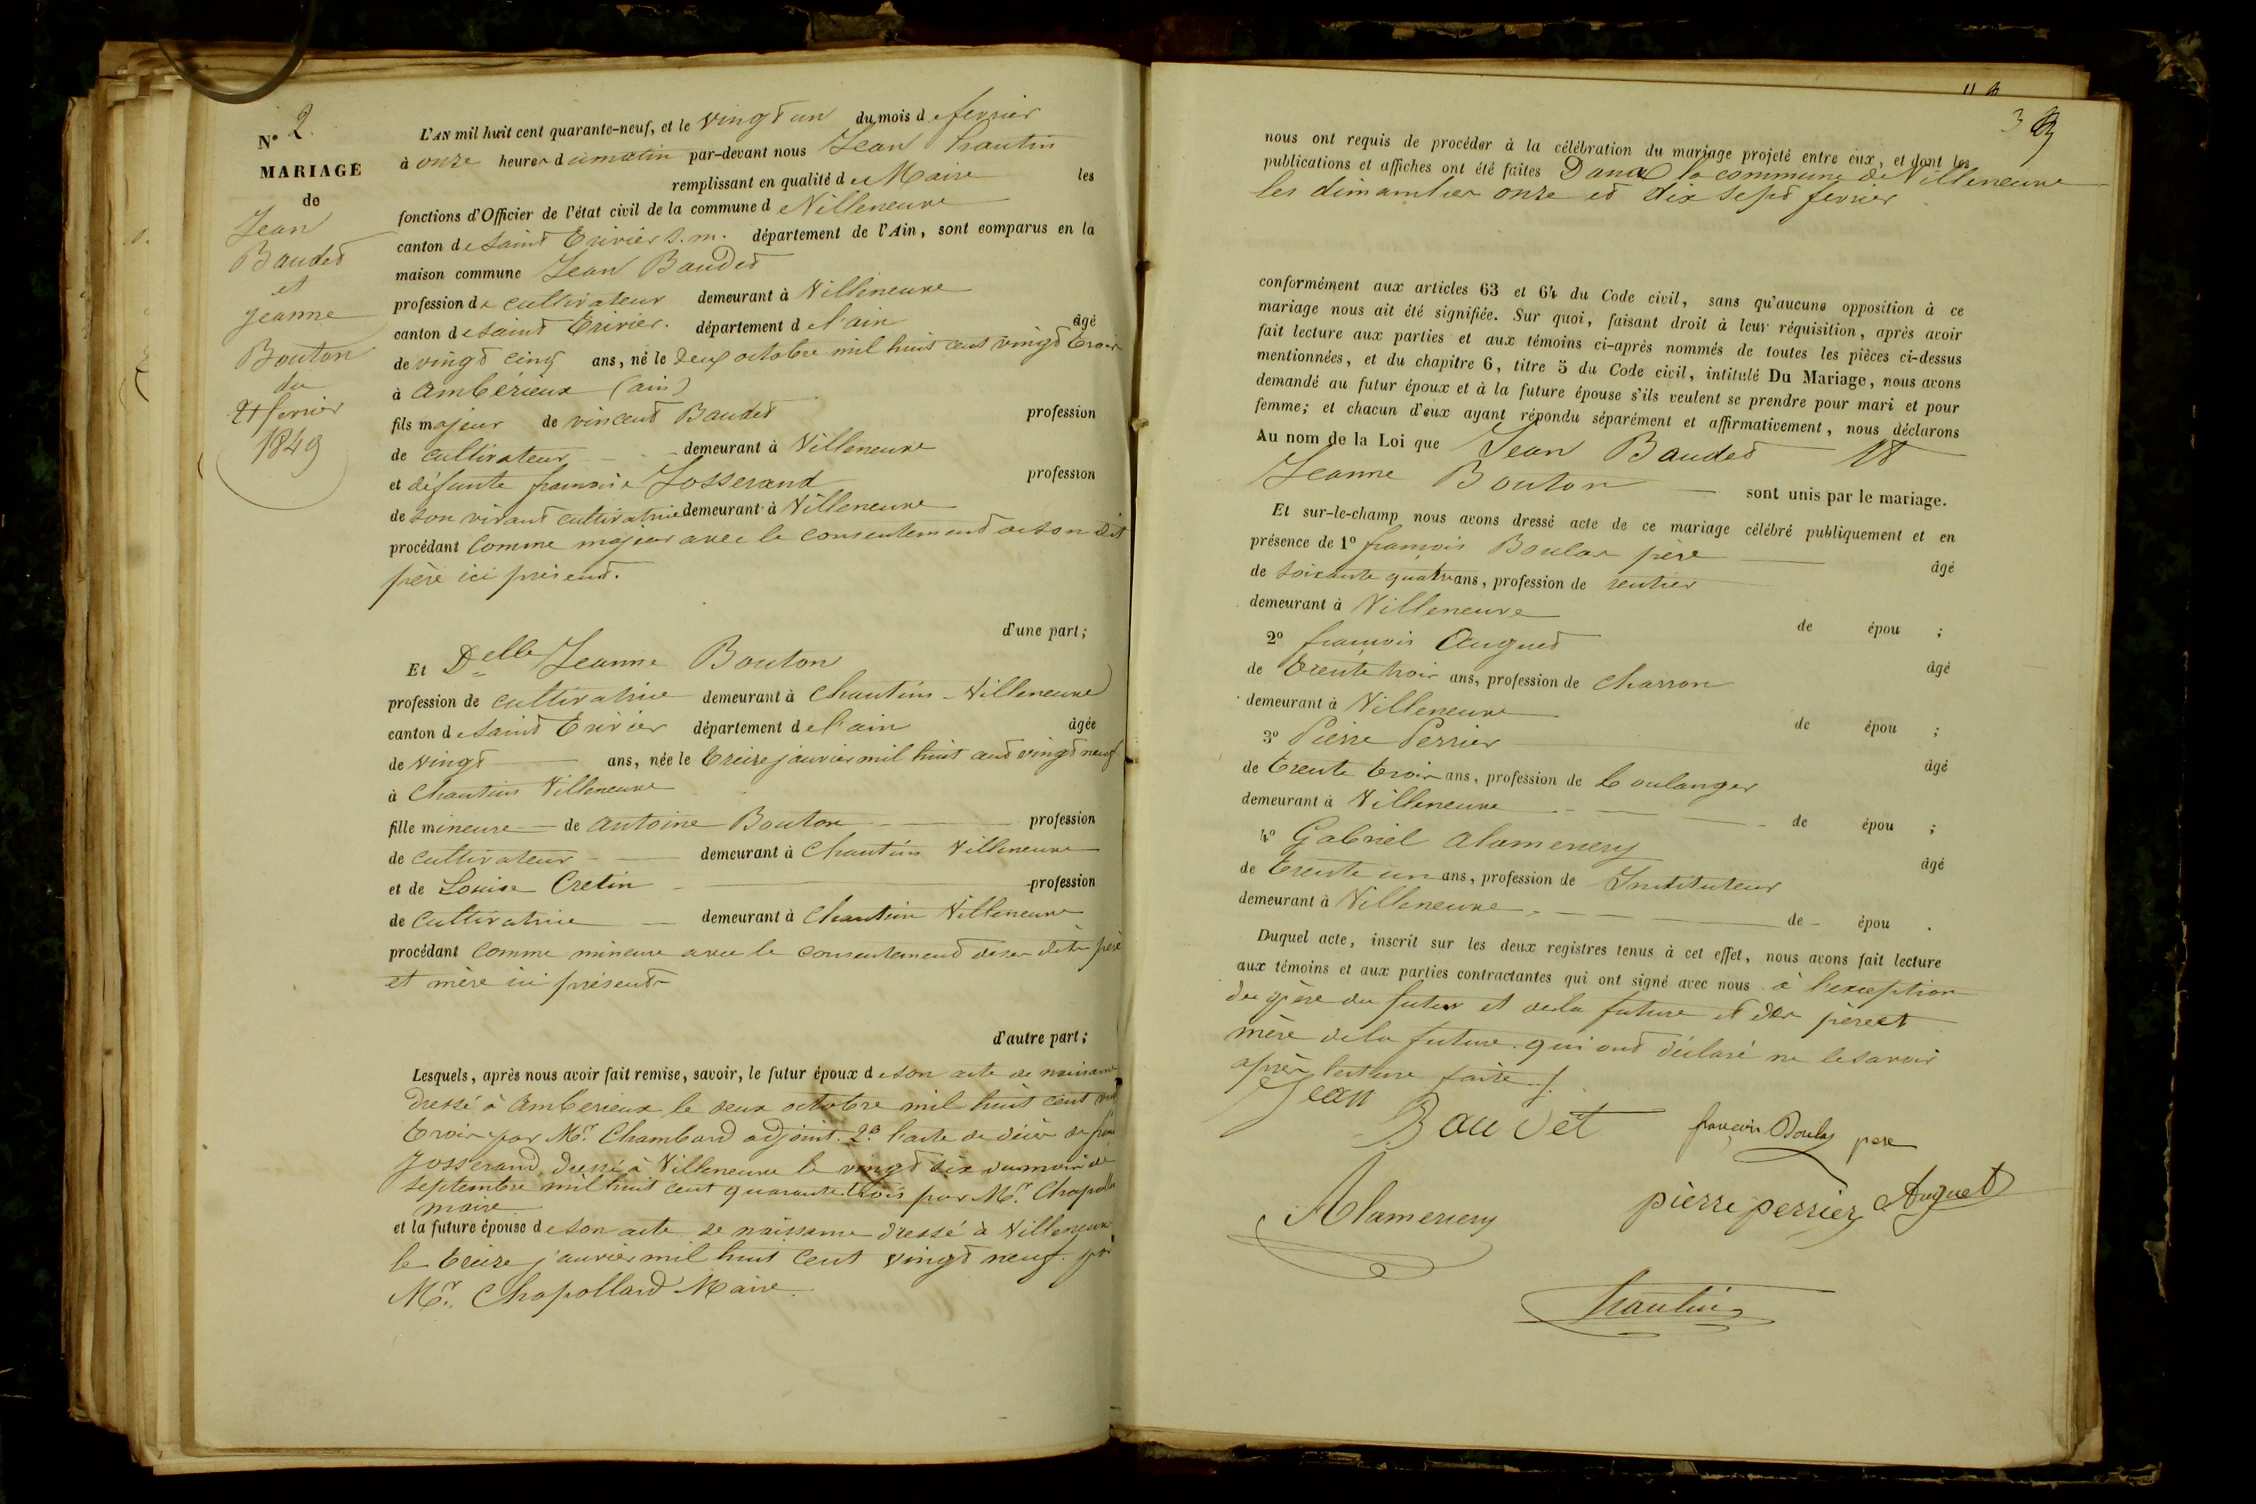 N° 2
MARIAGE
de
Jean
Baudet
et
Jeanne
Bouton
du
21 fevrier
1849
L'AN mil huit cent quarante-neuf, et le vingt un du mois de fevrier
à onze heures du matin par-devant nous Jean
remplissant en qualité de Maire les
fonctions d'Officier de l'état civil de la commune de Villeneuve
canton de Saint Trivier s. m. département de l'Ain, sont comparus en la
maison commune Jean Baudet
profession de cultivateur demeurant à Villeneuve
canton de Saint Trivier. département de l'ain âgé
de vingt cinq ans, né le deux octobre mil huit cent vingt trois
à Ambérieux (ain)
fils majeur de vincent Baudet profession
de cultivateur demeurant à Villeneuve
et défunte françoise Josserand profession
de son vivant cultivatrice demeurant à Villeneuve
procédant comme majeur avec le consentement de son dit
père ici présent.
d'une part;
Et Delle Jeanne Bouton
profession de cultivatrice demeurant à Chantins - Villeneuve
canton de Saint Trivier département de l'ain âgée
de vingt ans, née le treize janvier mil huit cent vingt neuf
à Chantins Villeneuve
fille mineure de antoine Bouton profession
de cultivateur demeurant à Chantins Villeneuve
et de Louise Cretin profession
de cultivatrice demeurant à Chantins Villeneuve
procédant comme mineure avec le consentement de ses dits père
et mère ici présents
d'autre part;
Lesquels, après nous avoir fait remise, savoir, le futur époux de son acte de naissance
dressé à Amberieux le deux octobre mil huit cent vingt
trois par Mr. Chambard adjoint. 2° l'acte de décès de
Josserand dressé à Villeneuve le vingt six du mois de
septembre mil huit cent quarante trois par Mr. Chapollard
maire
et la future épouse de son acte de naissance dressé à Villeneuve
le treize janvier mil huit cent vingt neuf par
Mr. Chapollard Maire.
3
nous ont requis de procéder à la célébration du mariage projeté entre eux, et dont les
publications et affiches ont été faites Dans la commune de Villeneuve
les dimanches onze et dix sept fevrier
conformément aux articles 63 et 64 du Code civil, sans qu'aucune opposition à ce
mariage nous ait été signifiée. Sur quoi, faisant droit à leur réquisition, après avoir
fait lecture aux parties et aux témoins ci-après nommés de toutes les pièces ci-dessus
mentionnées, et du chapitre 6, titre 5 du Code civil, intitulé Du Mariage, nous avons
demandé au futur époux et à la future épouse s'ils veulent se prendre pour mari et pour
femme; et chacun d'eux ayant répondu séparément et affirmativement, nous déclarons
Au nom de la Loi que Jean Baudet et
Jeanne Bouton sont unis par le mariage.
Et sur-le-champ nous avons dressé acte de ce mariage célébré publiquement et en
présence de 1° françois Boulas père âgé
de soixante quatre ans, profession de rentier
demeurant à Villeneuve de épou ;
2° françois Auguet âgé
de trente trois ans, profession de charron
demeurant à Villeneuve de épou ;
3° Pierre Perrier âgé
de trente trois ans, profession de boulanger
demeurant à Villeneuve de épou ;
4° Gabriel Alamercery âgé
de trente un ans, profession de Instituteur
demeurant à Villeneuve. de épou .
Duquel acte, inscrit sur les deux registres tenus à cet effet, nous avons fait lecture
aux témoins et aux parties contractantes qui ont signé avec nous à l'exception
du père du futur et de la future et des père et
mère de la future qui ont déclaré ne le savoir
après lecture faite.
Jean
Baudet françois Boulas pere
Alamercery pierre perrier Auguet